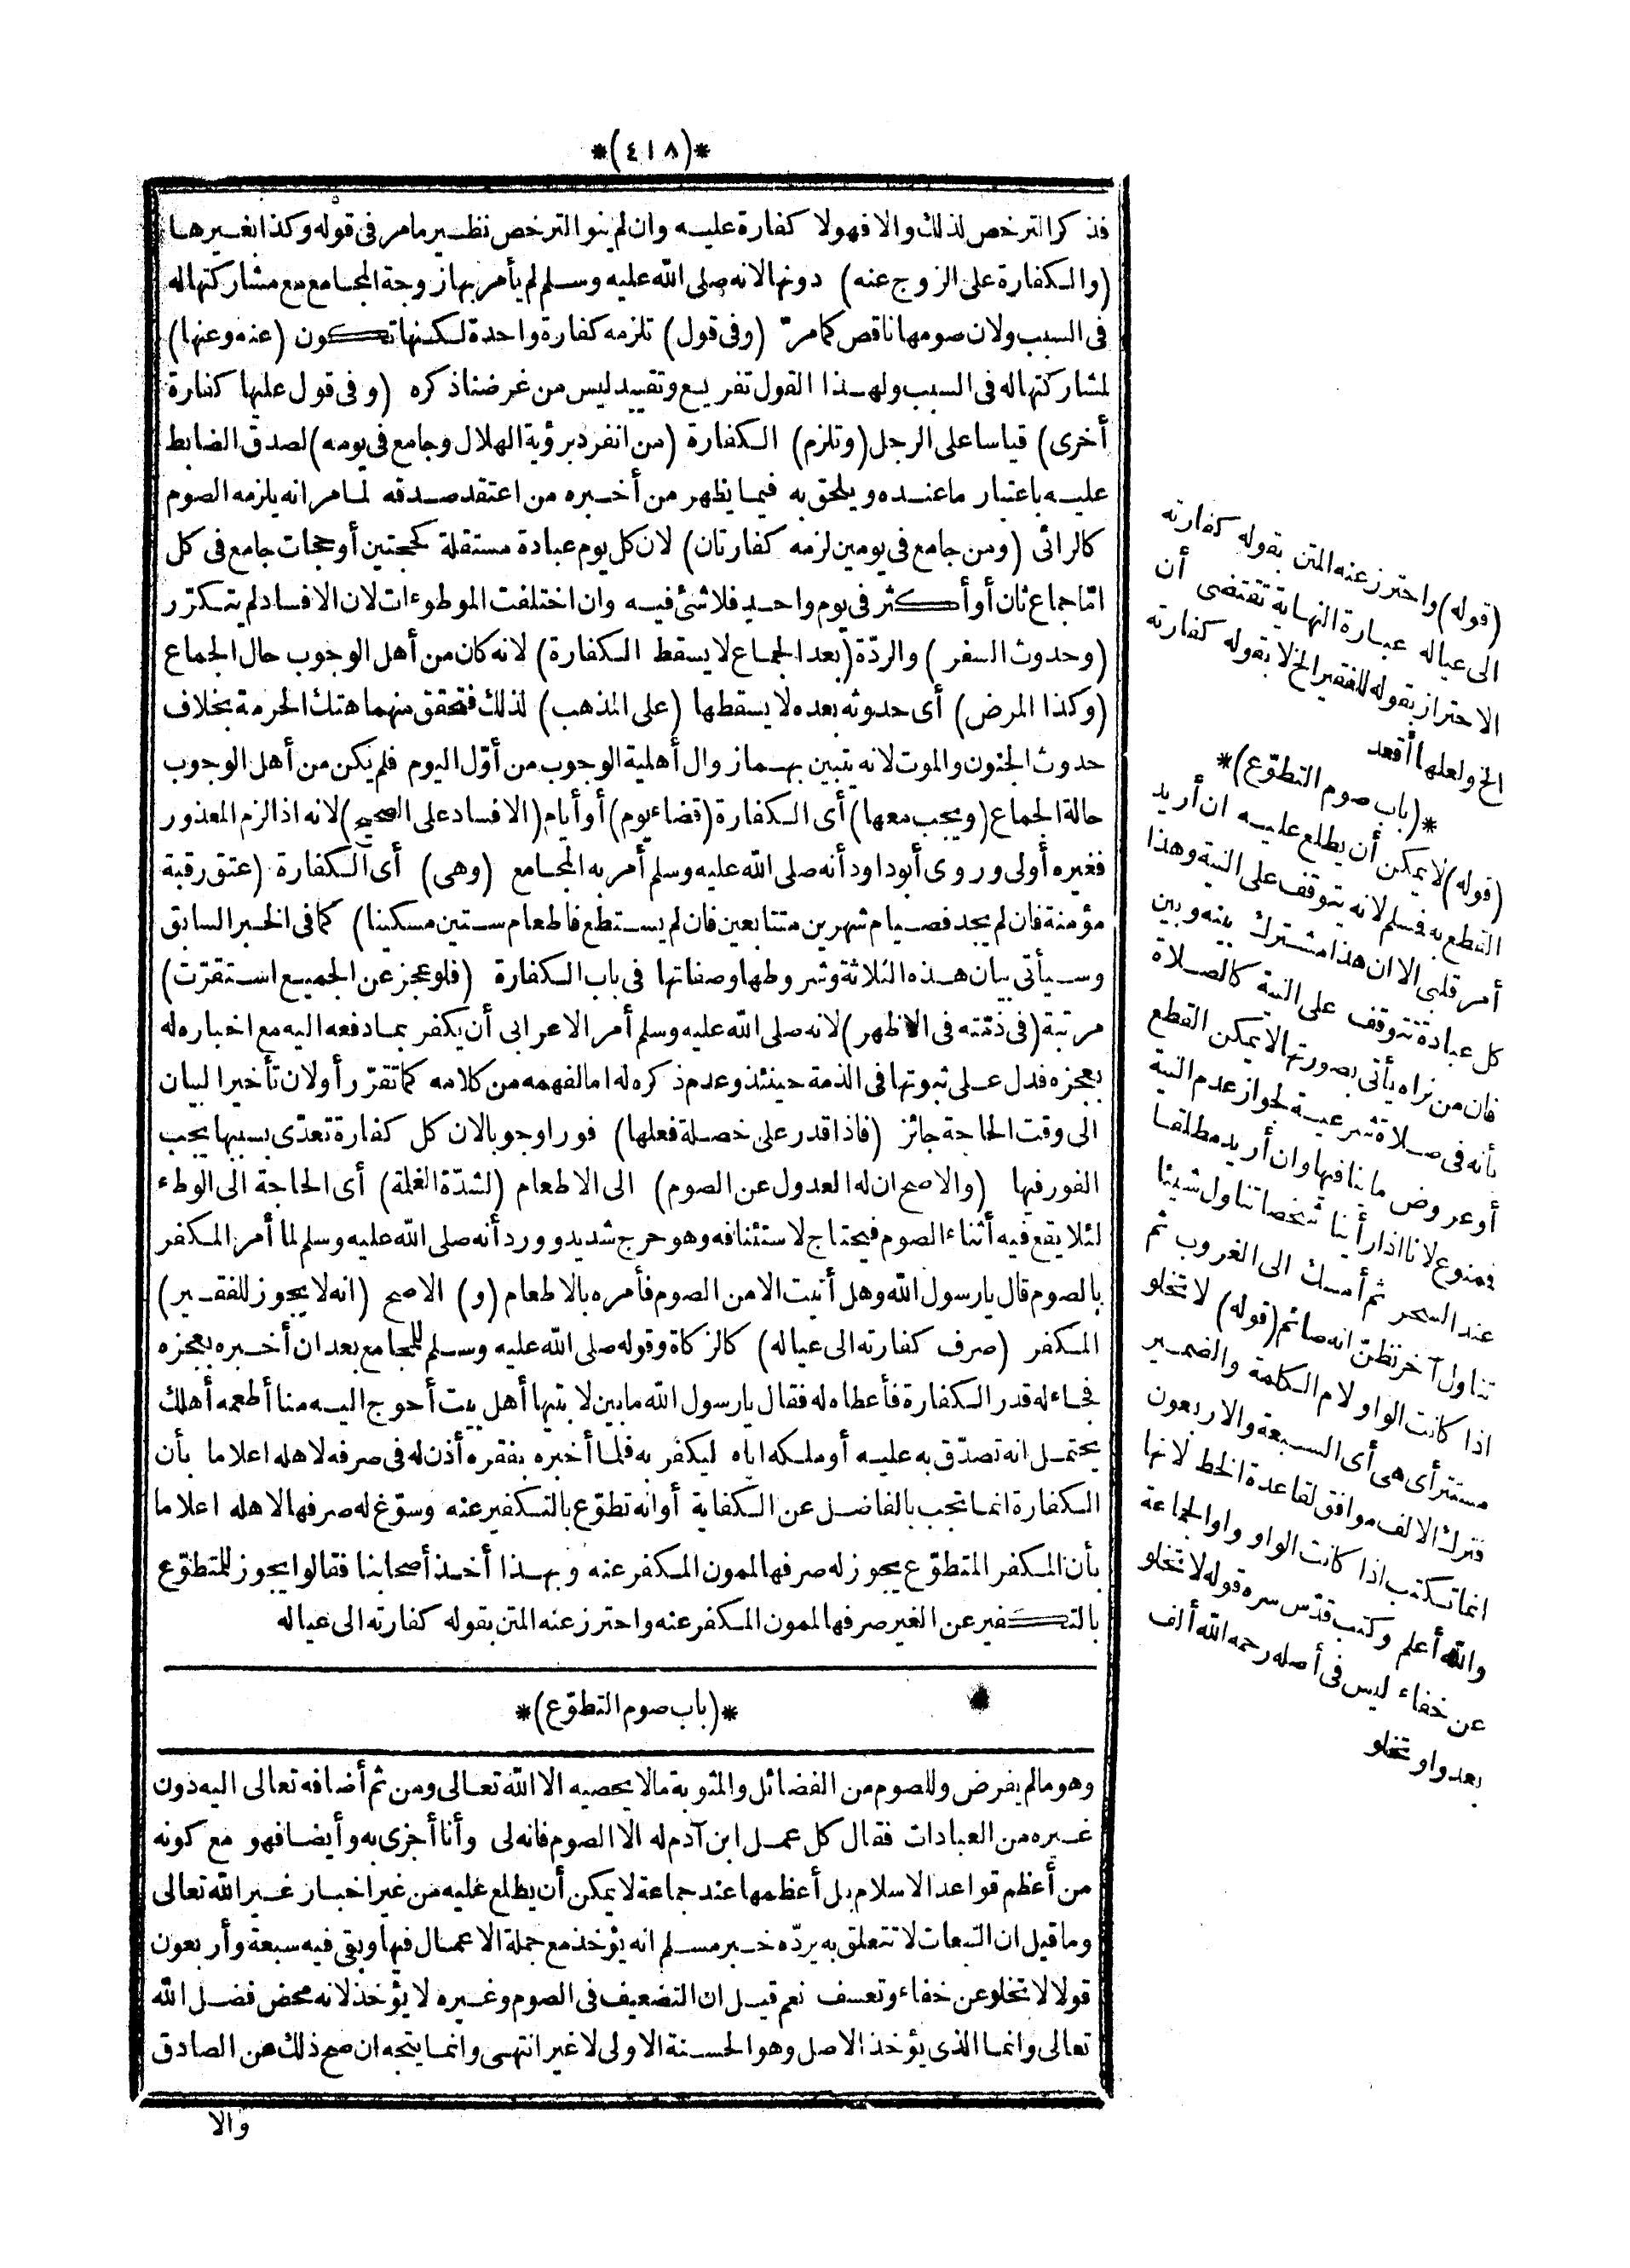 *(٤١٨)*
فذكر الترخص لذلك والا فهو لا كفارة عليه وان لم ينو الترخص نظير ما مر فى قوله وكذا بغيرها
(والكفارة على الزوج عنه) دونها لانه صلى الله عليه وسلم لم يأمر بها زوجة المجامع مع مشاركتها له
فى السبب ولان صومها ناقص كما مرّ (وفى قول) تلزمه كفارة واحدة لكنها تكون (عنه وعنها)
لمشاركتها له فى السبب ولهذا القول تفريع وتقييد ليس من غرضنا ذكره (وفى قول عليها كفارة
أخرى) قياسا على الرجل (وتلزم) الكفارة (من انفرد برؤية الهلال وجامع فى يومه) لصدق الضابط
عليه باعتبار ما عنده ويلحق به فيما يظهر من أخبره من اعتقد صدقه لما مر انه يلزمه الصوم
كالرائى (ومن جامع فى يومين لزمه كفارتان) لان كل يوم عبادة مستقلة كحجتين أو حجات جامع فى كل
امّا جماع ثان أو أكثر فى يوم واحد فلا شئ فيه وان اختلفت الموطوءات لان الافساد لم يتكرّر
(وحدوث السفر) والردّة (بعد الجماع لا يسقط الكفارة) لانه كان من أهل الوجوب حال الجماع
(وكذا المرض) أى حدوثه بعده لا يسقطها (على المذهب) لذلك فتحقق منهما هتك الحرمة بخلاف
حدوث الجنون والموت لانه يتبين بهما زوال أهلية الوجوب من أوّل اليوم فلم يكن من أهل الوجوب
حالة الجماع (ويجب معها) أى الكفارة (قضاء يوم) أو أيام (الافساد على الصحيح) لانه اذا لزم المعذور
فغيره أولى وروى أبو داود أنه صلى الله عليه وسلم أمر به المجامع (وهى) أى الكفارة (عتق رقبة
مؤمنة فان لم يجد فصيام شهرين متتابعين فان لم يستطع فاطعام ستين مسكينا) كما فى الخبر السابق
وسيأتى بيان هذه الثلاثة وشروطها وصفاتها فى باب الكفارة (فلو عجز عن الجميع استقرّت)
مرتبة (فى ذمّته فى الاظهر) لانه صلى الله عليه وسلم أمر الاعرابى أن يكفر بما دفعه اليه مع اخباره له
بعجزه فدل على ثبوتها فى الذمة حينئذ وعدم ذكره له اما لفهمه من كلامه كما تقرّر أو لان تأخير البيان
الى وقت الحاجة جائز (فاذا قدر على خصلة فعلها) فورا وجوبا لان كل كفارة تعدّى بسببها يجب
الفور فيها (والاصح ان له العدول عن الصوم) الى الاطعام (لشدّة الغلمة) أى الحاجة الى الوطء
لئلا يقع فيه أثناء الصوم فيحتاج لاستئنافه وهو حرج شديد وورد أنه صلى الله عليه وسلم لما أمر المكفر
بالصوم قال يا رسول الله وهل أتيت الا من الصوم فأمره بالاطعام (و) الاصح (انه لا يجوز للفقير)
المكفر (صرف كفارته الى عياله) كالزكاة وقوله صلى الله عليه وسلم للمجامع بعد ان أخبره بعجزه
فجاءله قدر الكفارة فأعطاه له فقال يا رسول الله ما بين لابتيها أهل بيت أحوج اليه منا أطعمه أهلك
يحتمل انه تصدّق به عليه أو ملكه اياه ليكفر به فلما أخبره بفقره أذن له فى صرفه لاهله اعلاما بأن
الكفارة انما تجب بالفاضل عن الكفاية أو انه تطوّع بالتكفير عنه وسوّغ له صرفها لاهله اعلاما
بأن المكفر المتطوّع يجوز له صرفها لممون المكفر عنه وبهذا أخذ أصحابنا فقالوا يجوز للمتطوّع
بالتكفير عن الغير صرفها لممون المكفر عنه واحترز عنه المتن بقوله كفارته الى عياله
*(باب صوم التطوّع)*
وهو ما لم يفرض وللصوم من الفضائل والمثوبة ما لا يحصيه الا الله تعالى ومن ثم أضافه تعالى اليه دون
غيره من العبادات فقال كل عمل ابن آدم له الا الصوم فانه لى وأنا أجزى به وأيضا فهو مع كونه
من أعظم قواعد الاسلام بل أعظمها عند جماعة لا يمكن أن يطلع عليه من غير اخبار غير الله تعالى
وما قيل ان التبعات لا تتعلق به يردّه خبر مسلم انه يؤخذ مع جملة الاعمال فيها وبقى فيه سبعة وأربعون
قولا لا تخلو عن خفاء وتعسف نعم قيل ان التضعيف فى الصوم وغيره لا يؤخذ لانه محض فضل الله
تعالى وانما الذى يؤخذ الاصل وهو الحسنة الاولى لا غير انتهى وانما يتجه ان صح ذلك عن الصادق
والا
(قوله) واحترز عنه المتن بقوله كفارته
الى عياله عبارة النهاية تقتضى أن
الاحتراز بقوله للفقير الخ لا بقوله كفارته
الخ ولعلها أقعد
*(باب صوم التطوّع)*
(قوله) لا يمكن أن يطلع عليه ان أريد
القطع به فسلم لانه يتوقف على النية وهذا
أمر قلبى الا ان هذا مشترك بينه وبين
كل عبادة تتوقف على النية كالصلاة
فان من نراه يأتى بصورتها لا يمكن القطع
بأنه فى صلاة شرعية لجواز عدم النية
أو عروض ما ينافيها وان أريد مطلقا
فممنوع لانا اذا رأينا شخصا تناول شيئا
عند السحر ثم أمسك الى الغروب ثم
تناول آخر نظنّ انه صائم (قوله) لا تخلو
اذا كانت الواو لام الكلمة والضمير
مستتر أى هى أى السبعة والاربعون
فترك الالف موافق لقاعدة الخط لانها
انما تكتب اذا كانت الواو واو الجماعة
والله أعلم وكتب قدّس سره قوله لا تخلو
عن خفاء ليس فى أصله رحمه الله ألف
بعد واو تخلو